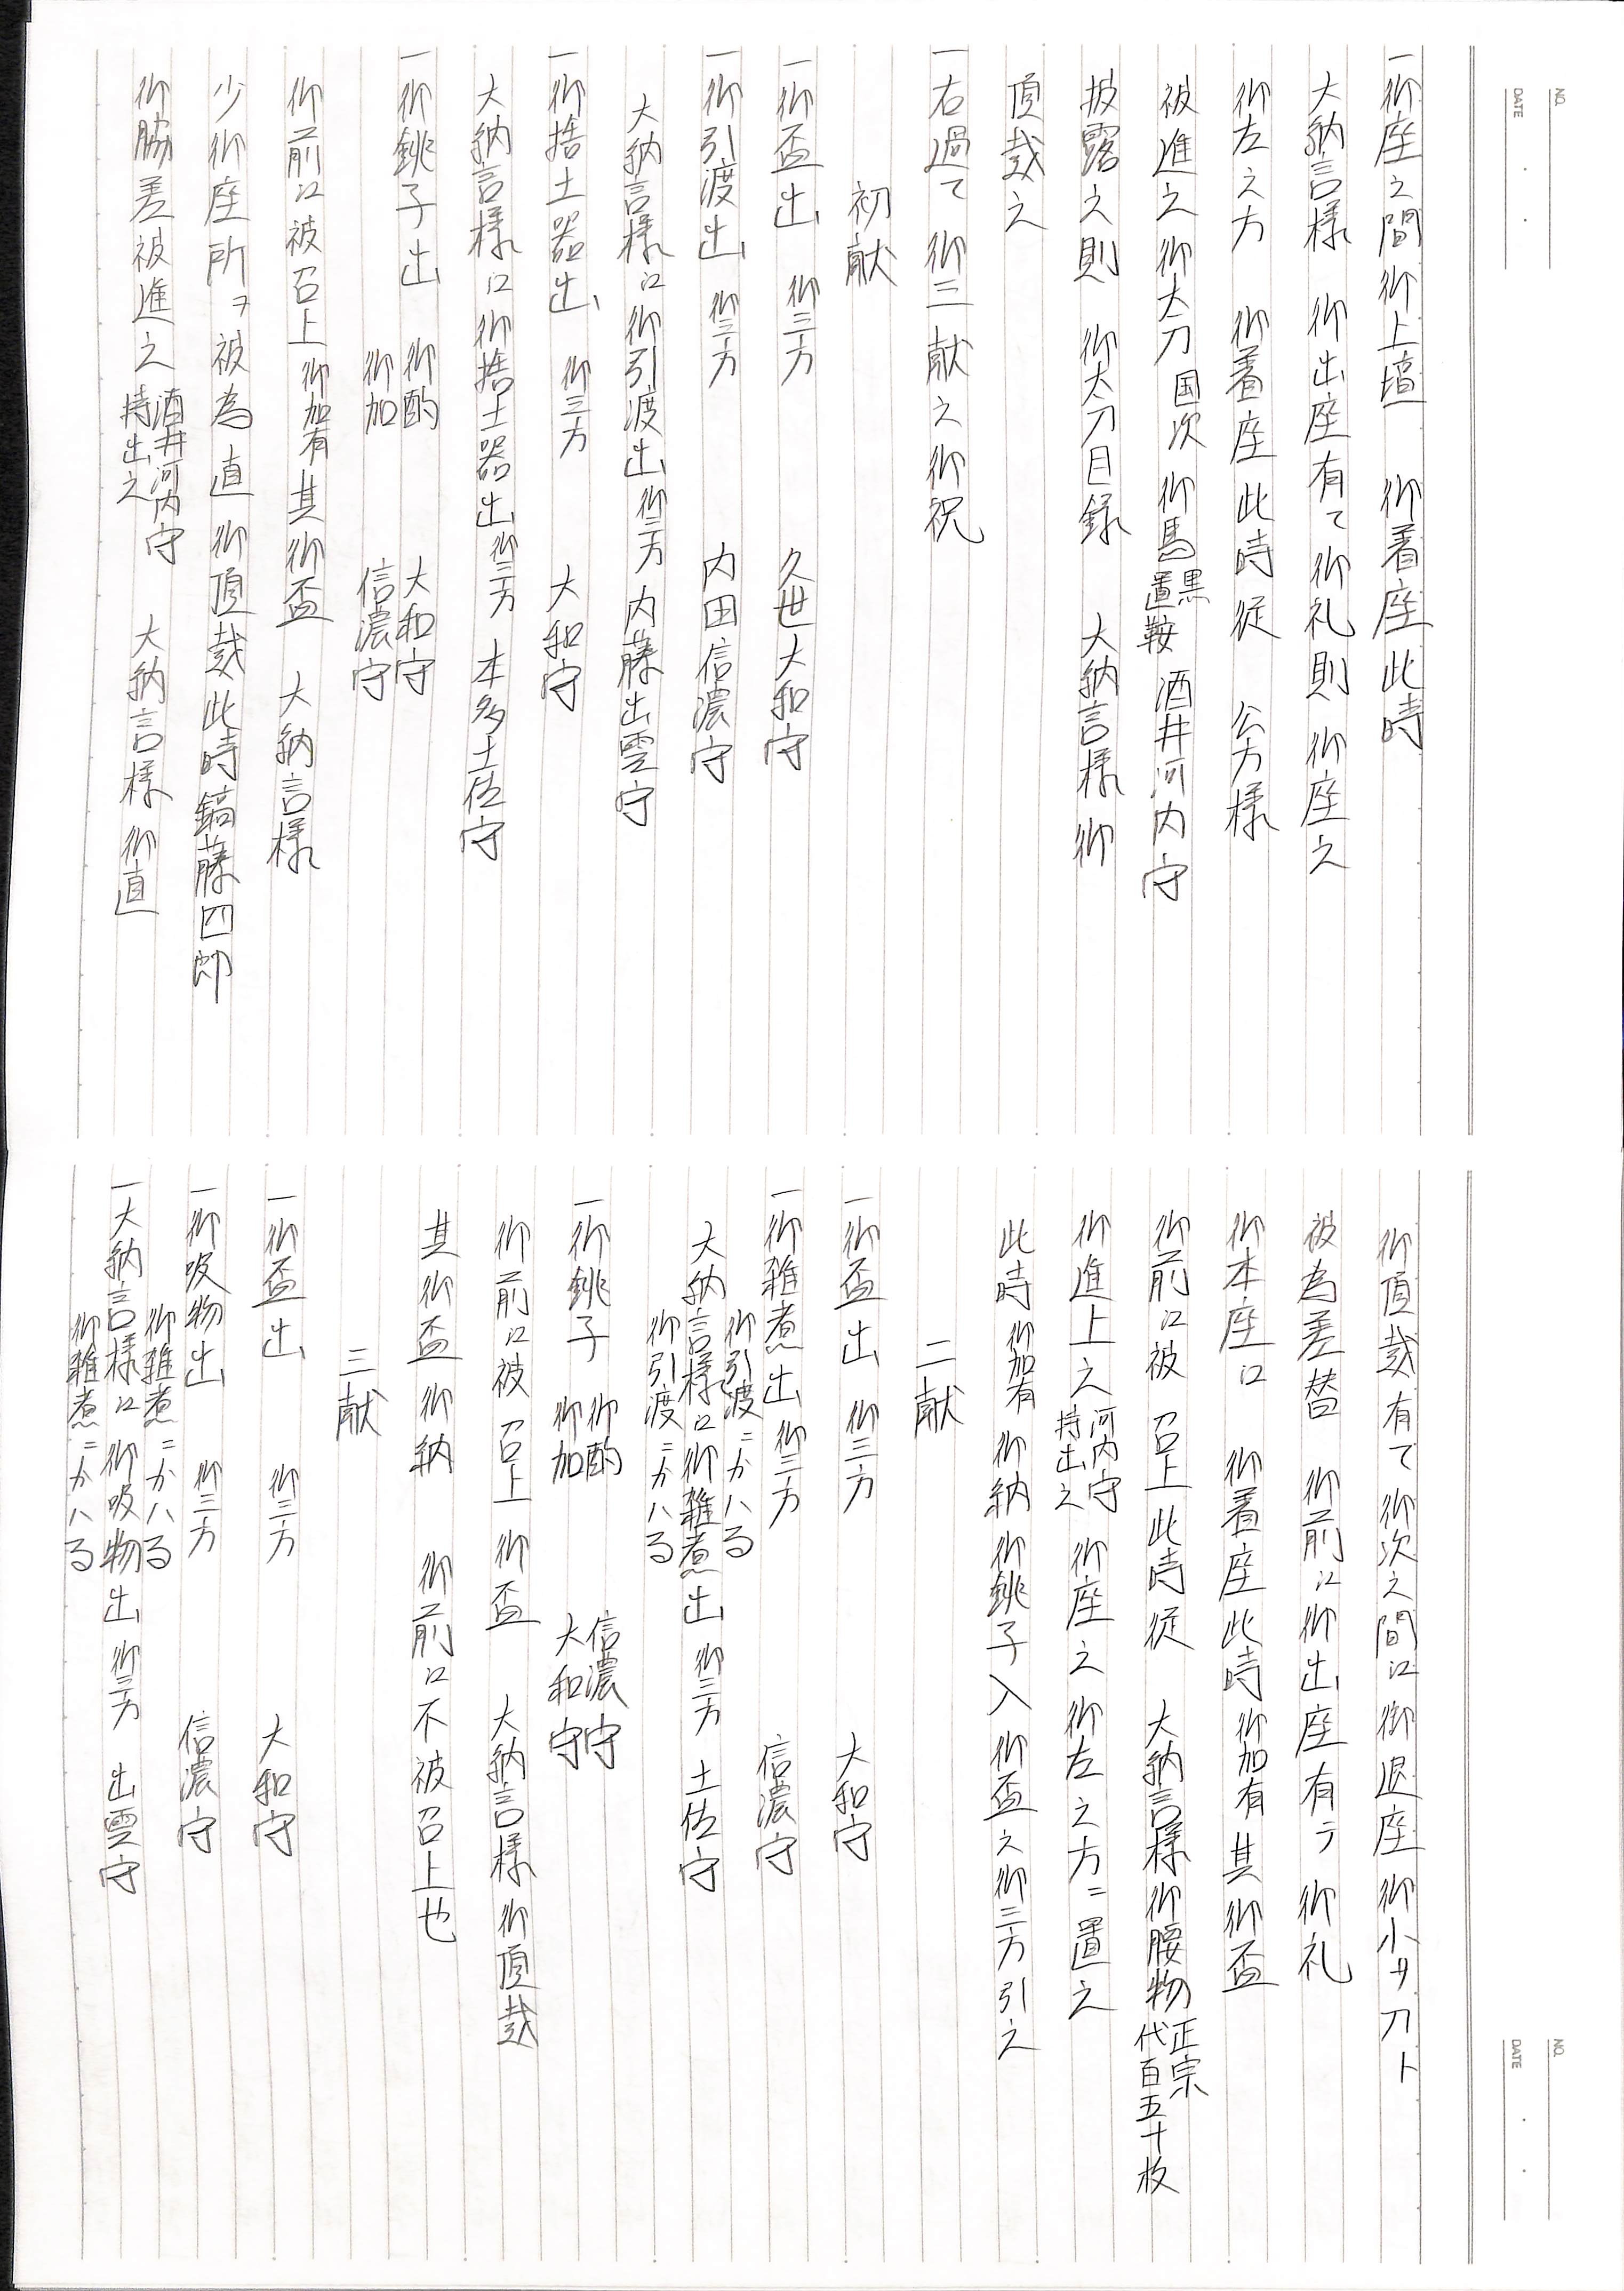 NO.
DATE
一御座之間御上壇　御着座此時
大納言様　御出座有て御礼則　御座之
御左之方　御着座此時従　公方様
被進之御太刀国次　御馬黒置鞍　酒井河内守
披露之則　御太刀目録　大納言様御
頂戴之
一右過て御三献之御祝
初献
一御盃出　御三方　久世大和守
一御引渡出　御三方　内田信濃守
大納言様江御引渡出御三方　内藤出雲守
一御捨土器出　御三方　大和守
大納言様江御捨土器出御三方　本多土佐守
一御銚子出　御酌　大和守
御加　信濃守
御前江被召上御加有其御盃　大納言様
少御座所ヲ被為直御頂戴此時鎬藤四郎
御脇差被進之酒井河内守持出之　大納言様御直
NO.
DATE
御頂戴有て御次之間江御退座御小サ刀ト
被為差替　御前江御出座有テ御礼
御本座江　御着座此時御加有其御盃
御前江被召上此時従　大納言様御腰物正宗代百五十枚
御進上之河内守持出之　御座之御左之方ニ置之
此時御加有御納御銚子入御盃之御三方引之
二献
一御盃出　御三方　大和守
一御雑煮出　御三方　信濃守
御引渡ニかハる
大納言様江御雑煮出　御三方　土佐守
御引渡ニかハる
一御銚子　御酌　信濃守
御加　大和守
御前江被召上御盃　大納言様御頂戴
其御盃御納　御前江不被召上也
三献
一御盃出　御三方　大和守
一御吸物出　御三方　信濃守
御雑煮ニかハる
一大納言様江御吸物出　御三方　出雲守
御雑煮ニかハる